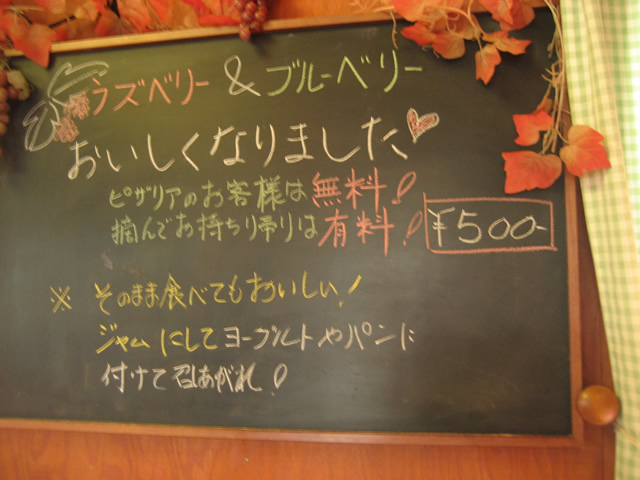 ラズベリー & ブルーベリー
おいしくなりました♡
ピザリアのお客様は無料!
摘んでお持ち帰りは有料! ¥500-
※ そのまま食べてもおいしい!
ジャムにしてヨーグルトやパンに
付けて召あがれ!